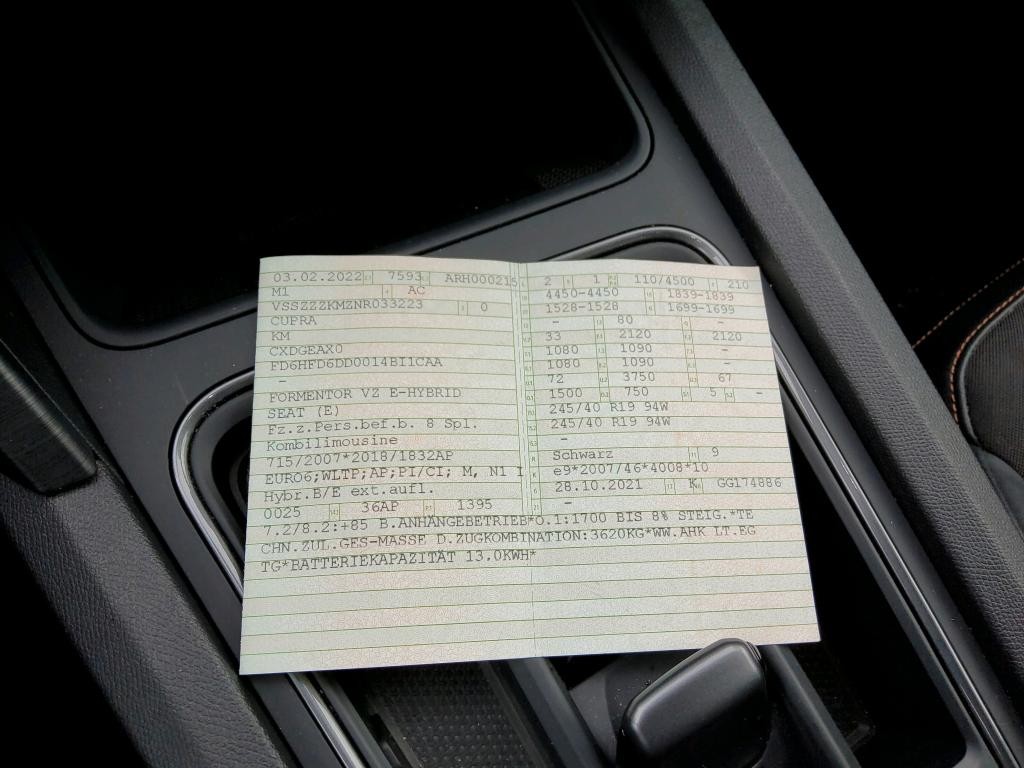 03.02.2022 7593 ARH000215
M1 AC
VSSZZZKMZNR033223 0
CUPRA
KM
CXDGEAX0
FD6HFD6DD0014BI1CAA
-
FORMENTOR VZ E-HYBRID
SEAT (E)
Fz.z.Pers.bef.b. 8 Spl.
Kombilimousine
715/2007*2018/1832AP
EURO6;WLTP;AP;PI/CI; M, N1 I
Hybr.B/E ext.aufl.
0025 36AP 1395
2 1 110/4500 210
4450-4450 1839-1839
1528-1528 1699-1699
- 80 -
33 2120 2120
1080 1090 -
1080 1090 -
72 3750 67
1500 750 5 -
245/40 R19 94W
245/40 R19 94W
-
Schwarz 9
e9*2007/46*4008*10
28.10.2021 K GG174886
-
7.2/8.2:+85 B.ANHÄNGEBETRIEB*O.1:1700 BIS 8% STEIG.*TE
CHN.ZUL.GES-MASSE D.ZUGKOMBINATION:3620KG*WW.AHK LT.EG
TG*BATTERIEKAPAZITÄT 13.0KWH*